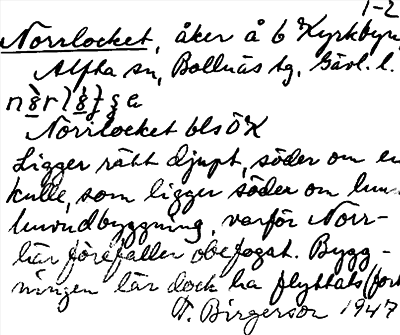 1-2
Norrlocket, åker å 6 Kyrkbyn,
Alfta sn, Bollnäs tg, Gävl. l.
Norrlocket bls ÖK
Ligger rätt djupt, söder om en
kulle, som ligger söder om
huvudbyggning, varför Norr-
här förefaller obefogat. Bygg-
ningen lär dock ha flyttats (för
F. Birgerson 1947